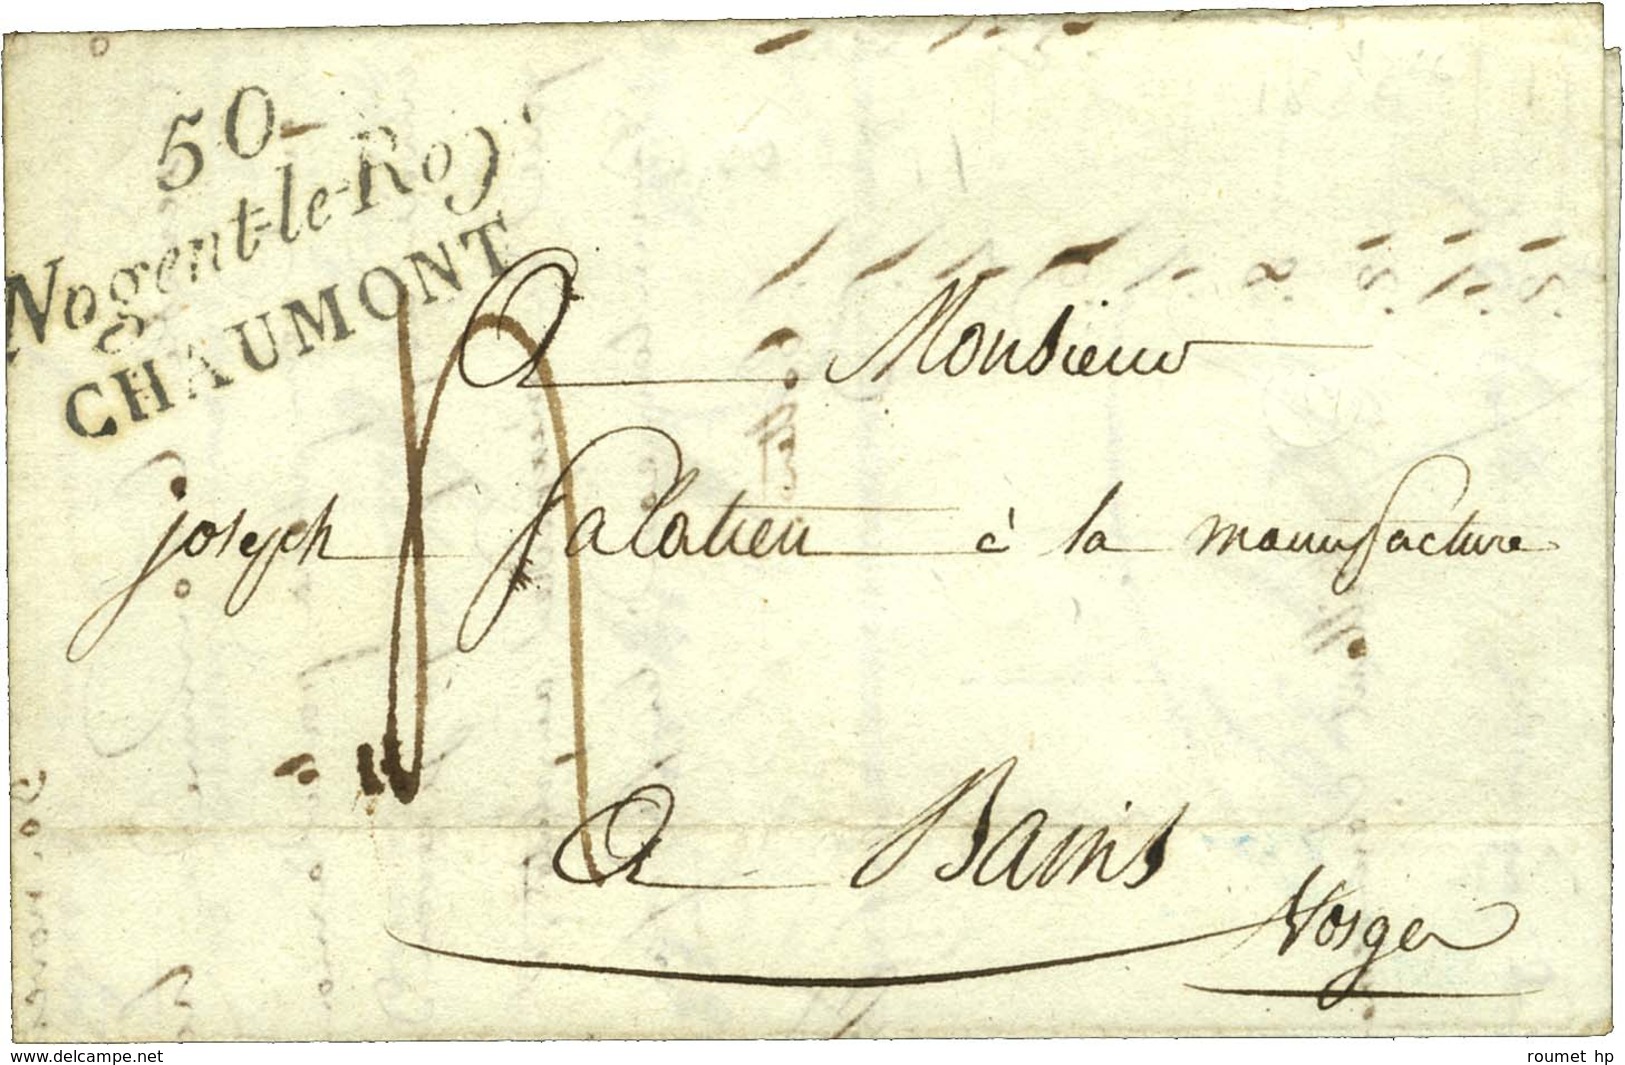 50
Nogent-le-Roy
CHAUMONT
A Monsieur
joseph falatieu à la manufacture
A Bains
Vosges
www.delcampe.net
roumet hp